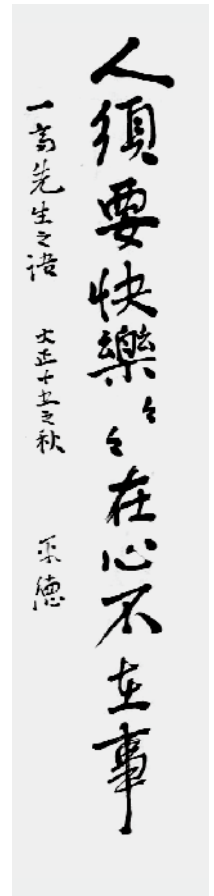 人須要快樂々々在心不在事
一斎先生之語 大正十五之秋